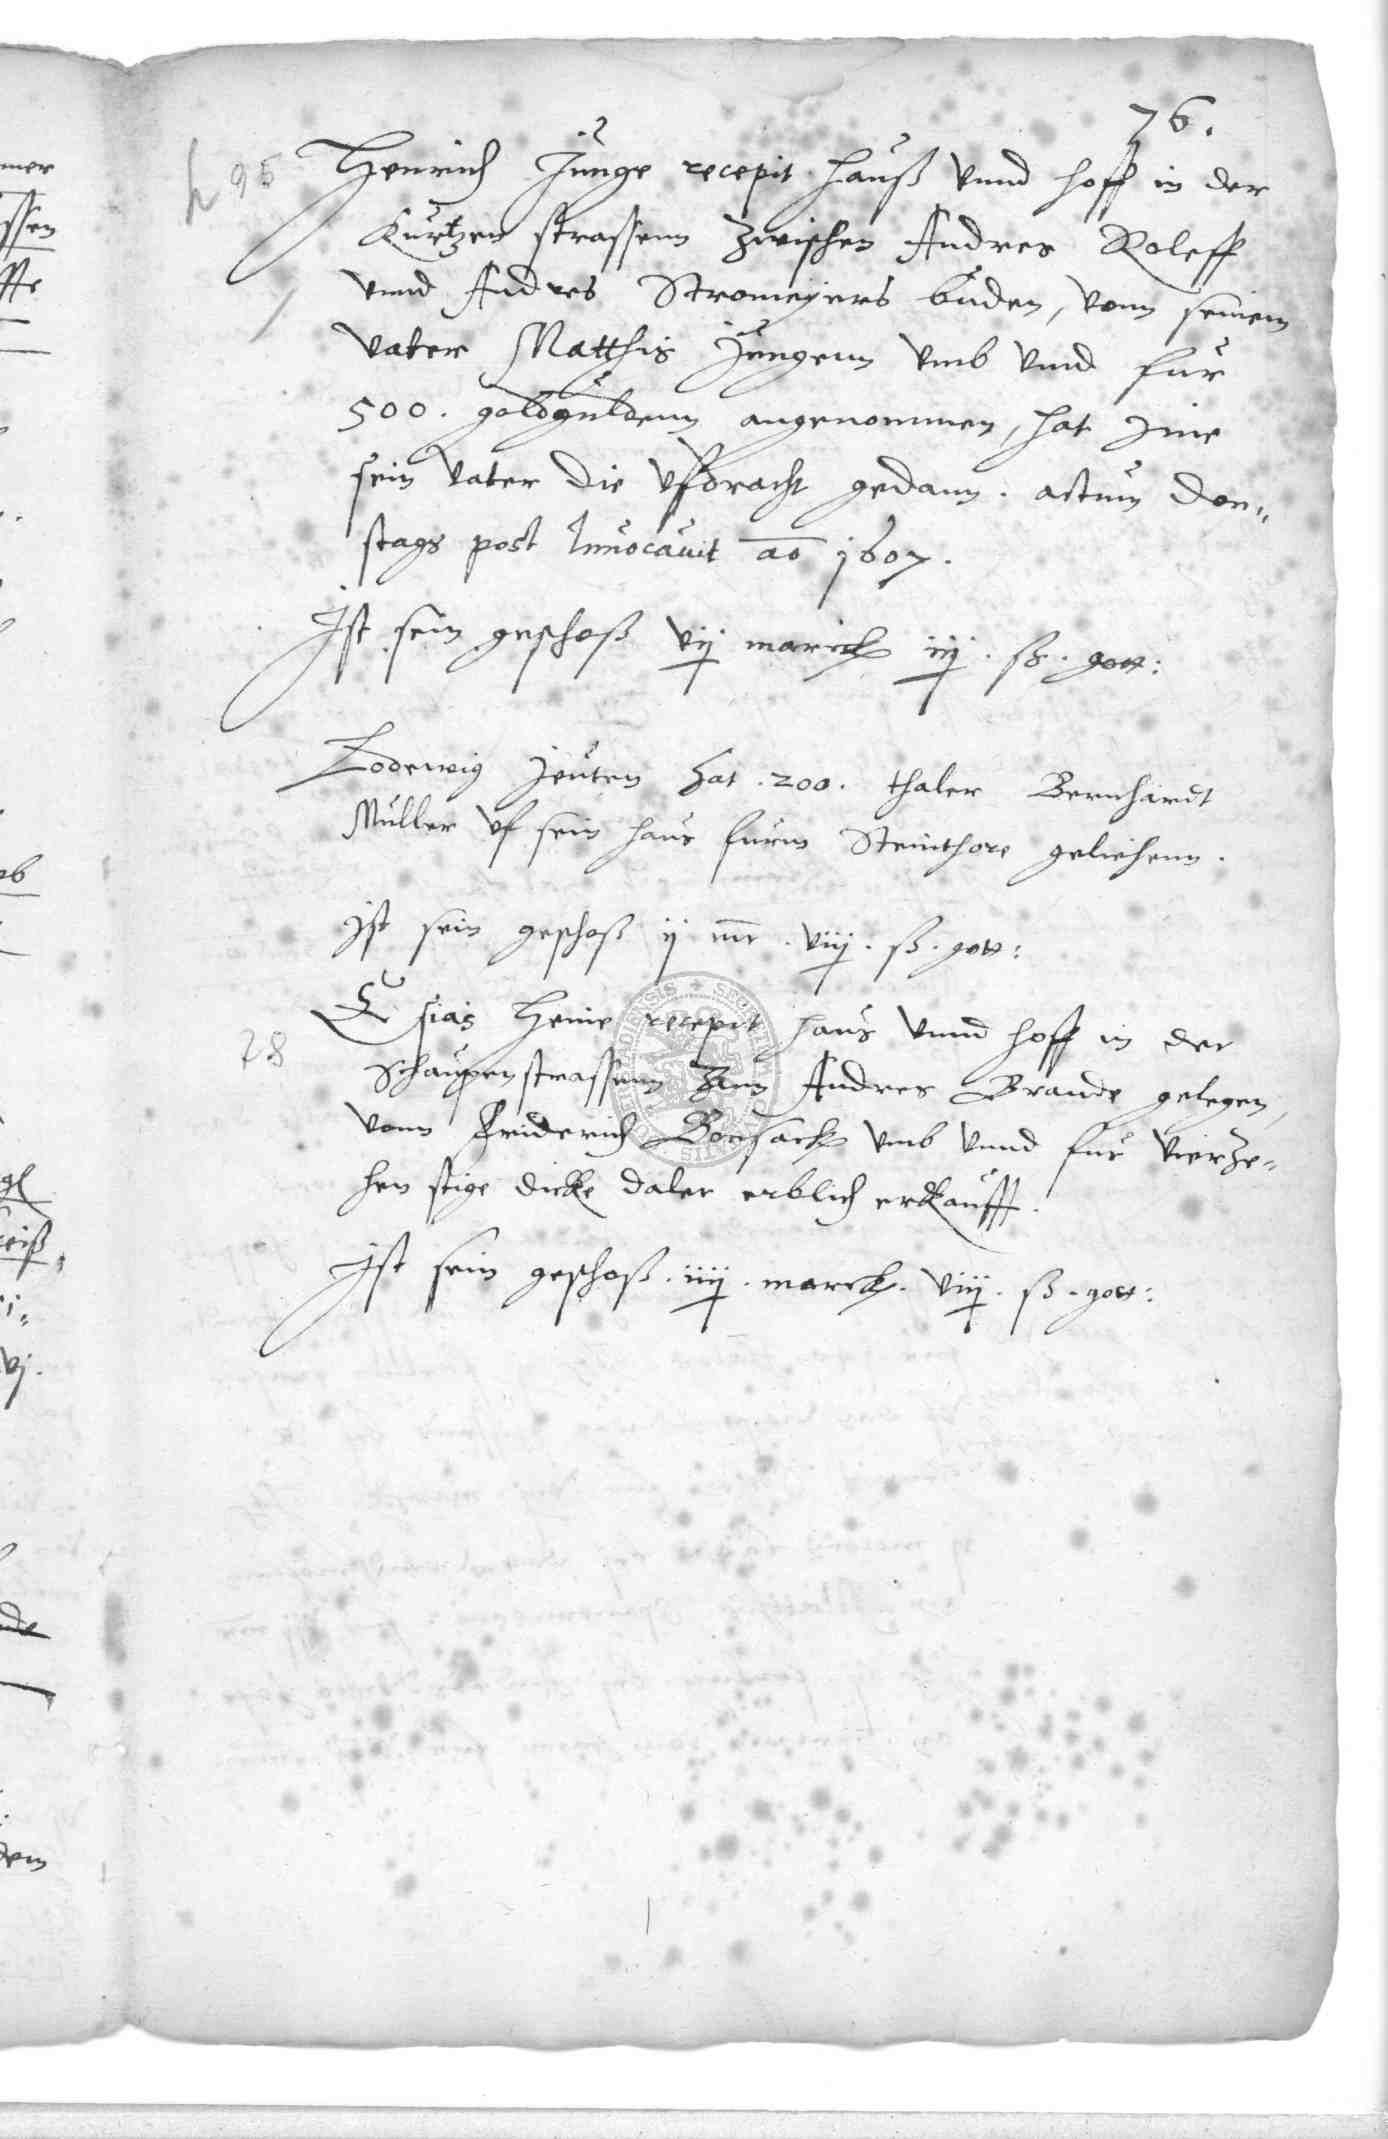 76.
h 95 Henrich Junge recepit hauß vnnd hoff in der
Kurtzen strassenn zwischen Andres Roleff
vnnd Andres Stromeyers buden, vonn seinem
vater Matthis Jungenn vmb vnnd fur
500. goldguldenn angenommen, hat Jme
sein vater die vfdracht gedann. actum don=
stags post Inuocauit ao 1607.
Ist sein geschoß vij marck iij. ß. gott:
Lodewig Jeuten hat .200. thaler Bernhardt
Muller vf sein haus furm Steinthore geliehenn.
Ist sein geschoß ij mr. viij. ß. gott:
28 Esias Heine recepit haus vnnd hoff in der
Schaupenstrassenn ann Andres Brande gelegen,
vonn Friderich Bonsack vmb vnnd fur vierze=
hen stige dicke daler erblich erkaufft.
Ist sein geschoß. iiij. marck. viij. ß. gott: